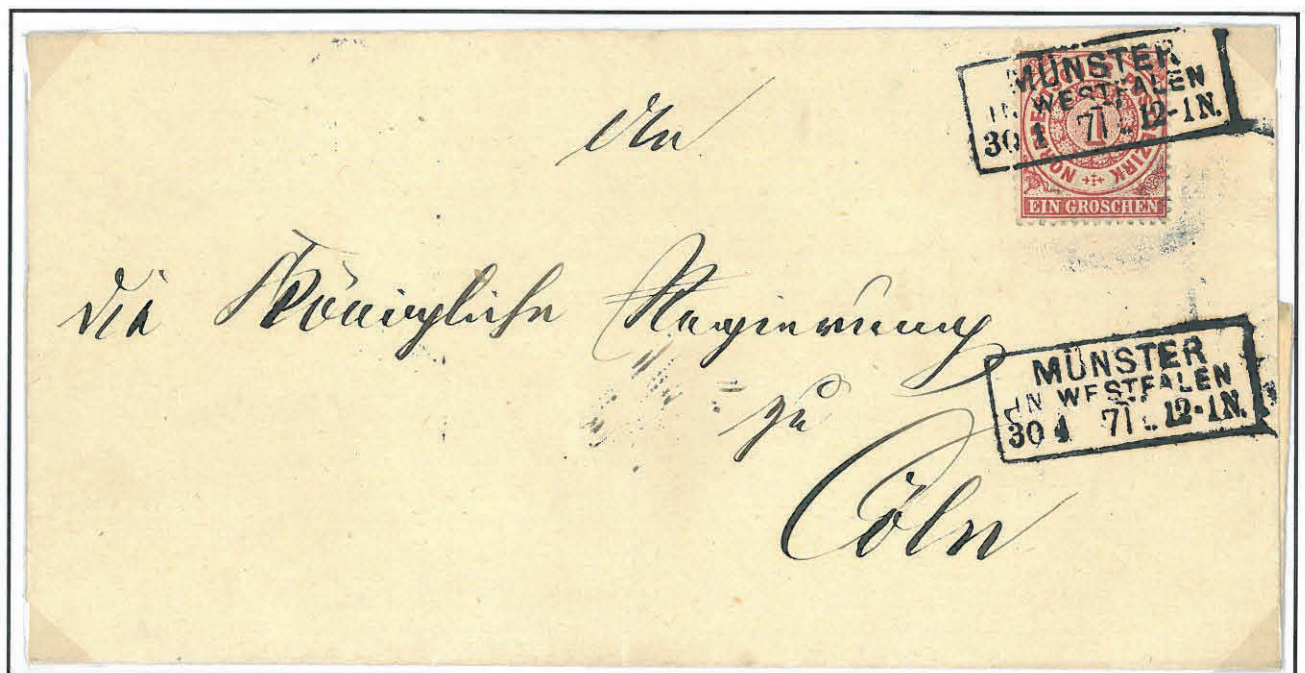 MÜNSTER
IN WESTFALEN
30 1 71 12-1N.
1
EIN GROSCHEN
An
die Königliche Regierung
zu
Cöln
MÜNSTER
IN WESTFALEN
30 1 71 12-1N.